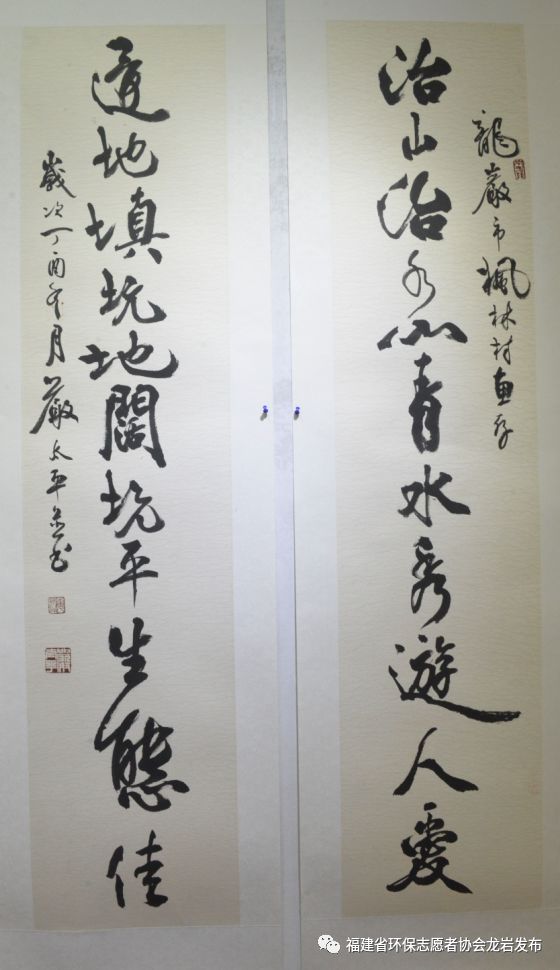 龍巖市楓林村惠存
治山治水山青水秀遊人愛
造地填坑地闊坑平生態佳
歲次丁酉年月嚴太平並书
福建省环保志愿者协会龙岩发布